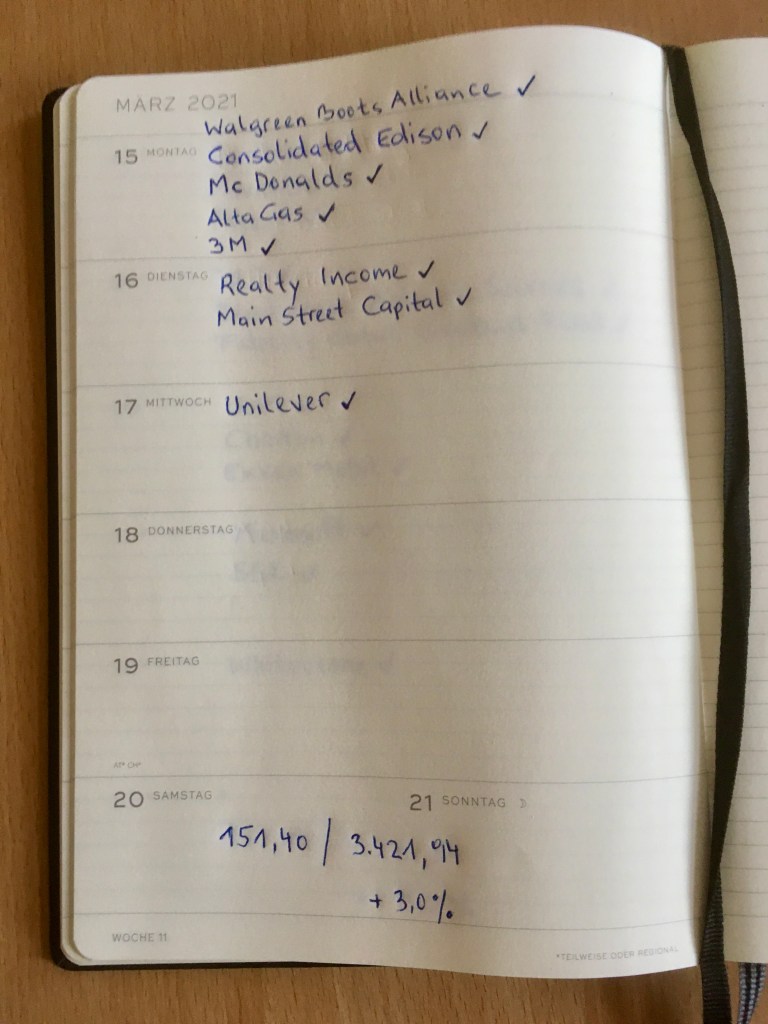 MÄRZ 2021
Walgreen Boots Alliance ✓
15 MONTAG Consolidated Edison ✓
Mc Donalds ✓
AltaGas ✓
3M ✓
16 DIENSTAG Realty Income ✓
Main Street Capital ✓
17 MITTWOCH Unilever ✓
18 DONNERSTAG
19 FREITAG
20 SAMSTAG 21 SONNTAG ☽
151,40 / 3.421,94
+ 3,0%
WOCHE 11
*TEILWEISE ODER REGIONAL